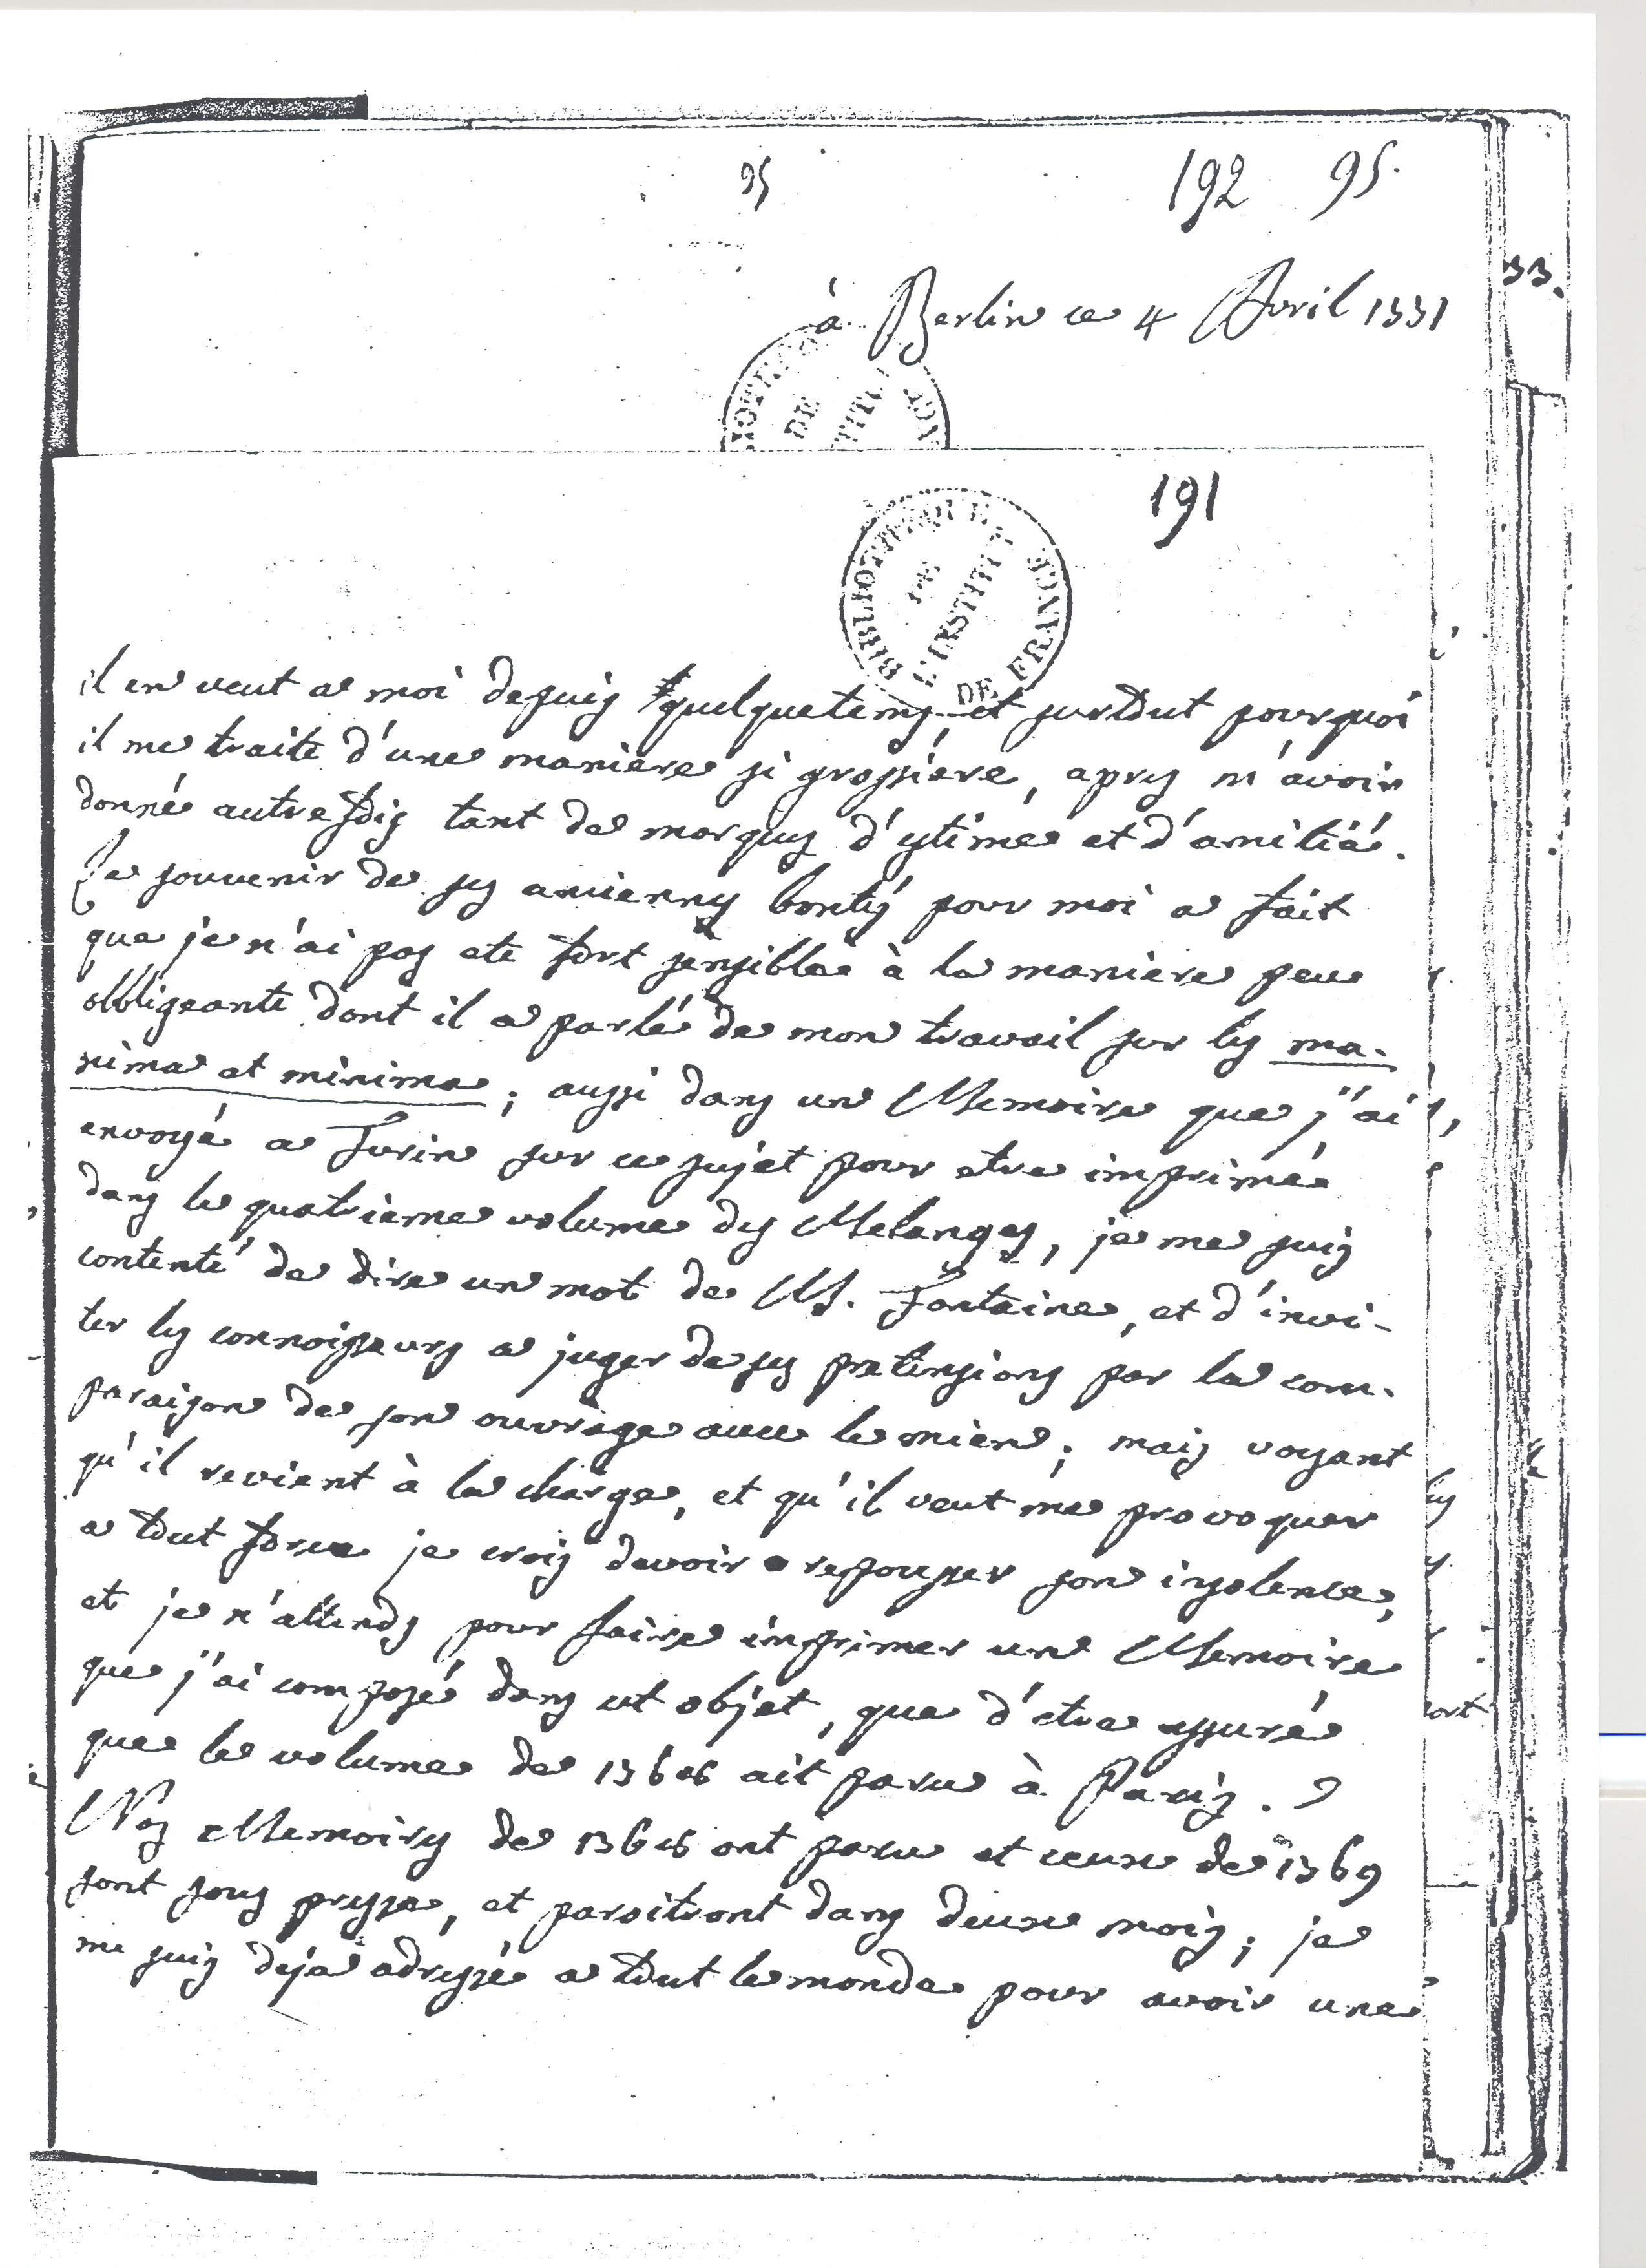 95
192 95.
à Berlin ce 4 Avril 1771
33.
BIBLIOTHEQUE DE L'INSTITUT DE FRANCE
191
il en veut a moi depuis quelquetems, et surtout pourquoi
il me traite d'une maniere si grossiere, apres m'avoir
donné autrefois tant de marques d'estime et d'amitié.
Le souvenir de ses anciennes bontés pour moi a fait
que je n'ai pas eté fort sensible à la maniere peu
obligeante dont il a parlé de mon travail sur les ma-
xima et minima; aussi dans un Memoire que j'ai
envoyé a Turin sur ce sujet pour etre imprimé
dans le quatrieme volume des Melanges, je me suis
contenté de dire un mot de M. Fontaine, et d'invi-
ter les connoisseurs a juger de ses pretensions par la com-
paraison de son ouvrage avec le mien; mais voyant
qu'il revient à la charge, et qu'il veut me provoquer
a tout force je crois devoir repousser son insolence,
et je n'attends pour faire imprimer un Memoire
que j'ai composé dans cet objet, que d'etre assuré
que le volume de 1768 ait paru à Paris.
Nos Memoires de 1768 ont paru et ceux de 1769
sont sous presse, et paroitront dans deux mois; je
me suis deja adressé a tout le monde pour avoir une